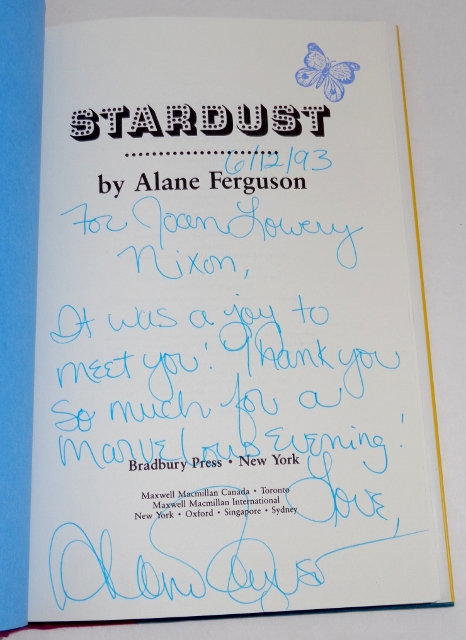 STARDUST
6/12/93
by Alane Ferguson
For Joan Lowery
Nixon,
It was a joy to
meet you! Thank you
so much for a
marvelous evening!
Bradbury Press • New York
Maxwell Macmillan Canada • Toronto
Maxwell Macmillan International
New York • Oxford • Singapore • Sydney
Love,
Alane Ferguson